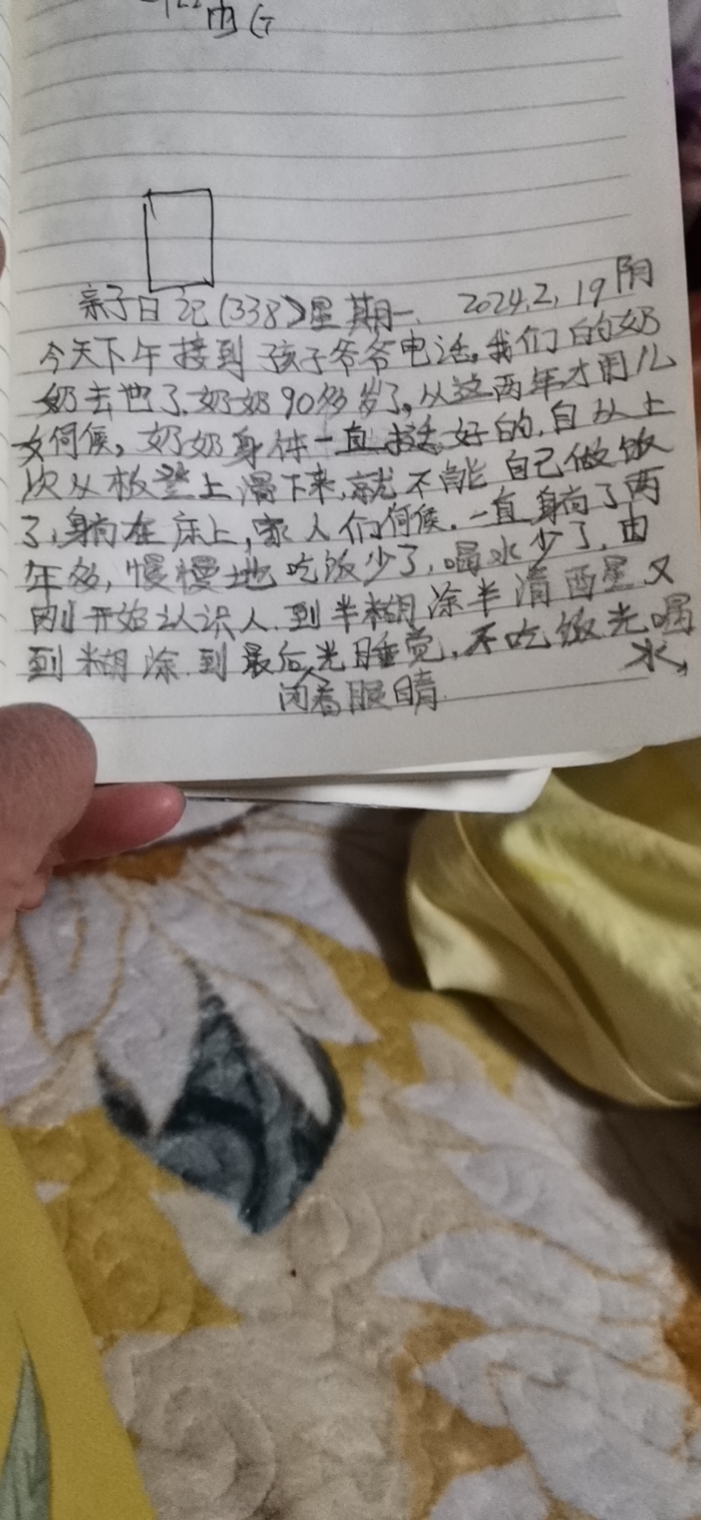 亲子日记(338)星期一. 2024.2.19阴
今天下午接到孩子爷爷电话。我们的奶
奶去世了.奶奶90多岁了。从这两年才用儿
女伺候。奶奶身体一直挺好的.自从上
次从板凳上滑下来,就不能自己做饭
了,躺在床上,家人们伺候.一直躺了两
年多,慢慢地吃饭少了,喝水少了.由
刚开始认识人.到半糊涂半清醒又
到糊涂.到最后光睡觉.不吃饭光喝
水,
闭着眼睛.